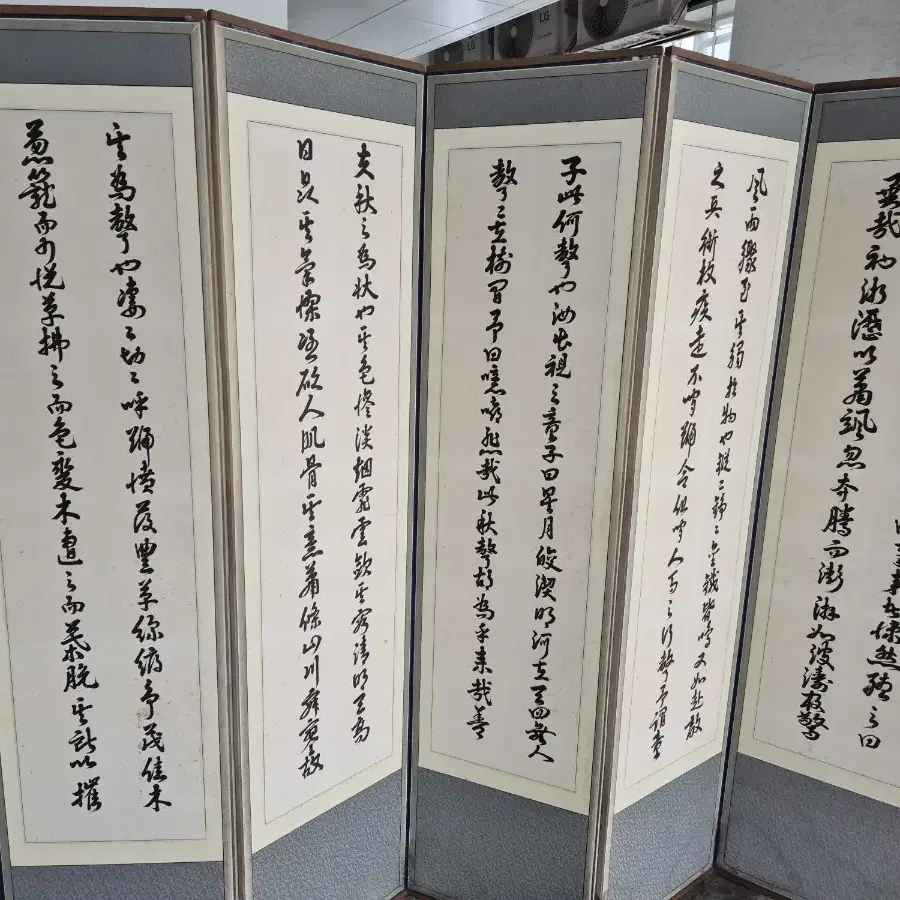 LG
LG
來者悚然聽之曰
異哉初淅瀝以蕭颯忽奔騰而澎湃如波濤夜驚
風雨驟至其觸於物也鏦〻錚〻金鐵皆鳴又如赴敵
之兵銜枚疾走不聞號令但聞人馬之行聲予謂童
子此何聲也汝出視之童子曰星月皎潔明河在天四無人
聲〻在樹間予曰噫嘻悲哉此秋聲胡為乎來哉蓋
夫秋之為狀也其色慘淡烟霏雲斂其容清明天高
日晶其氣慄冽砭人肌骨其意蕭條山川寂寥故
其為聲也凄〻切〻呼號憤發豐草綠縟爭茂佳木
葱籠而可悅草拂之而色變木遭之而葉脫其所以摧